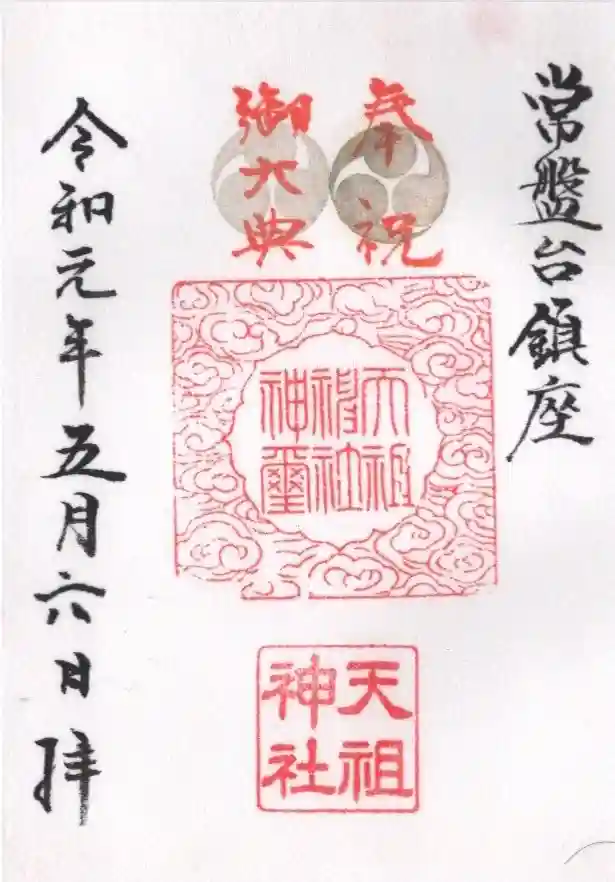 常盤台鎮座
奉祝
御大典
天祖
神社
神璽
天祖
神社
令和元年五月六日拝